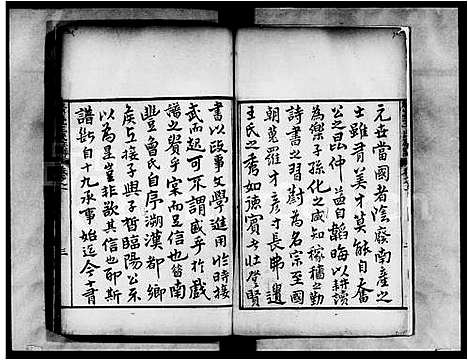 元世當國者陰廢南產之
士雖有美才莫能自奮
公之曰仲益自韜晦以耕讀
為樂子孫化之咸知稼穡之勤
詩書之習蔚為名宗至國
朝蒐羅才彥寸長弗遺
王氏之秀如德賓者壯登賢
書以政事文學進用他時接
武而起可不謂盛乎於戲
譜之贊乎棠而足信也昔南
豐曾氏自序溯漢都鄉
侯丘接子與子晳臨陽公示
以為是豈非欲其信也耶斯
譜斷自十九承事始迄今十有